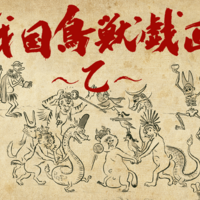 戦国鳥獣戯画
〜乙〜